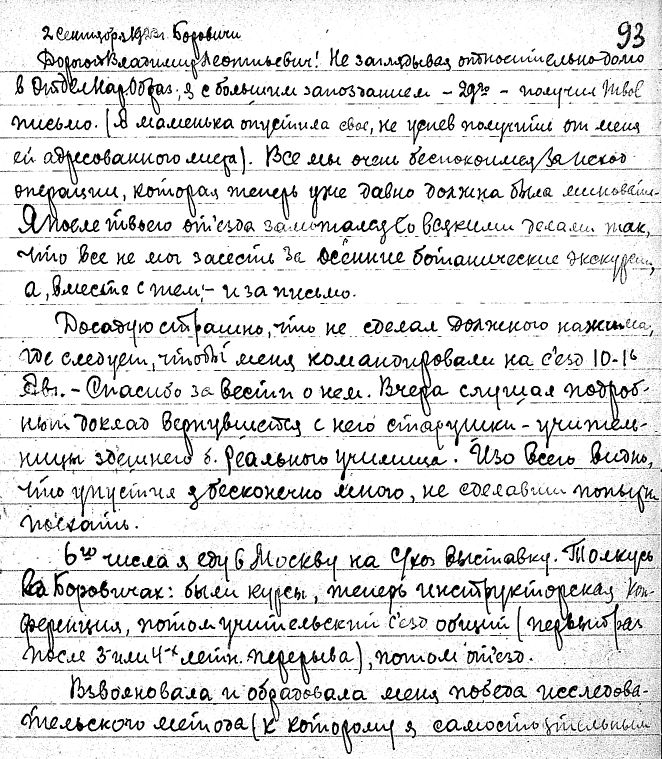 93
2 сентября 1923г. Боровичи
Дорогой Владимир Леонтьевич! Не заглядывая относительно долго
в Отдел Нар Образ., я с большим запозданием – 29го – получил твое
письмо. (А маменька опустила свое, не успев получить от меня
ей адресованного письма). Все мы очень беспокоимся за исход
операции, которая теперь уже давно должна была миновать.
Я после твоего от'езда замотался со всякими делами так,
что все не мог засесть за осенние ботанические экскурсии,
а, вместе с тем, – и за письмо.
Досадую страшно, что не сделал должного нажима,
где следует, чтобы меня командировали на с'езд 10-16
Авг. – Спасибо за вести о нем. Вчера слушал подроб-
ный доклад вернувшейся с него старушки – учитель-
ницы здешнего б. реального училища. Изо всего видно,
что упустил я бесконечно много, не сделавши попытки
поехать.
6го числа я еду в Москву на С/хоз выставку. Толкусь
в Боровичах: были курсы, теперь инструкторская кон-
ференция, потом учительский с'езд общий (первый раз
после 3х или 4х летн. перерыва), потом от'езд.
Взволновала и обрадовала меня победа исследова-
тельского метода (к которому я самостоятельным